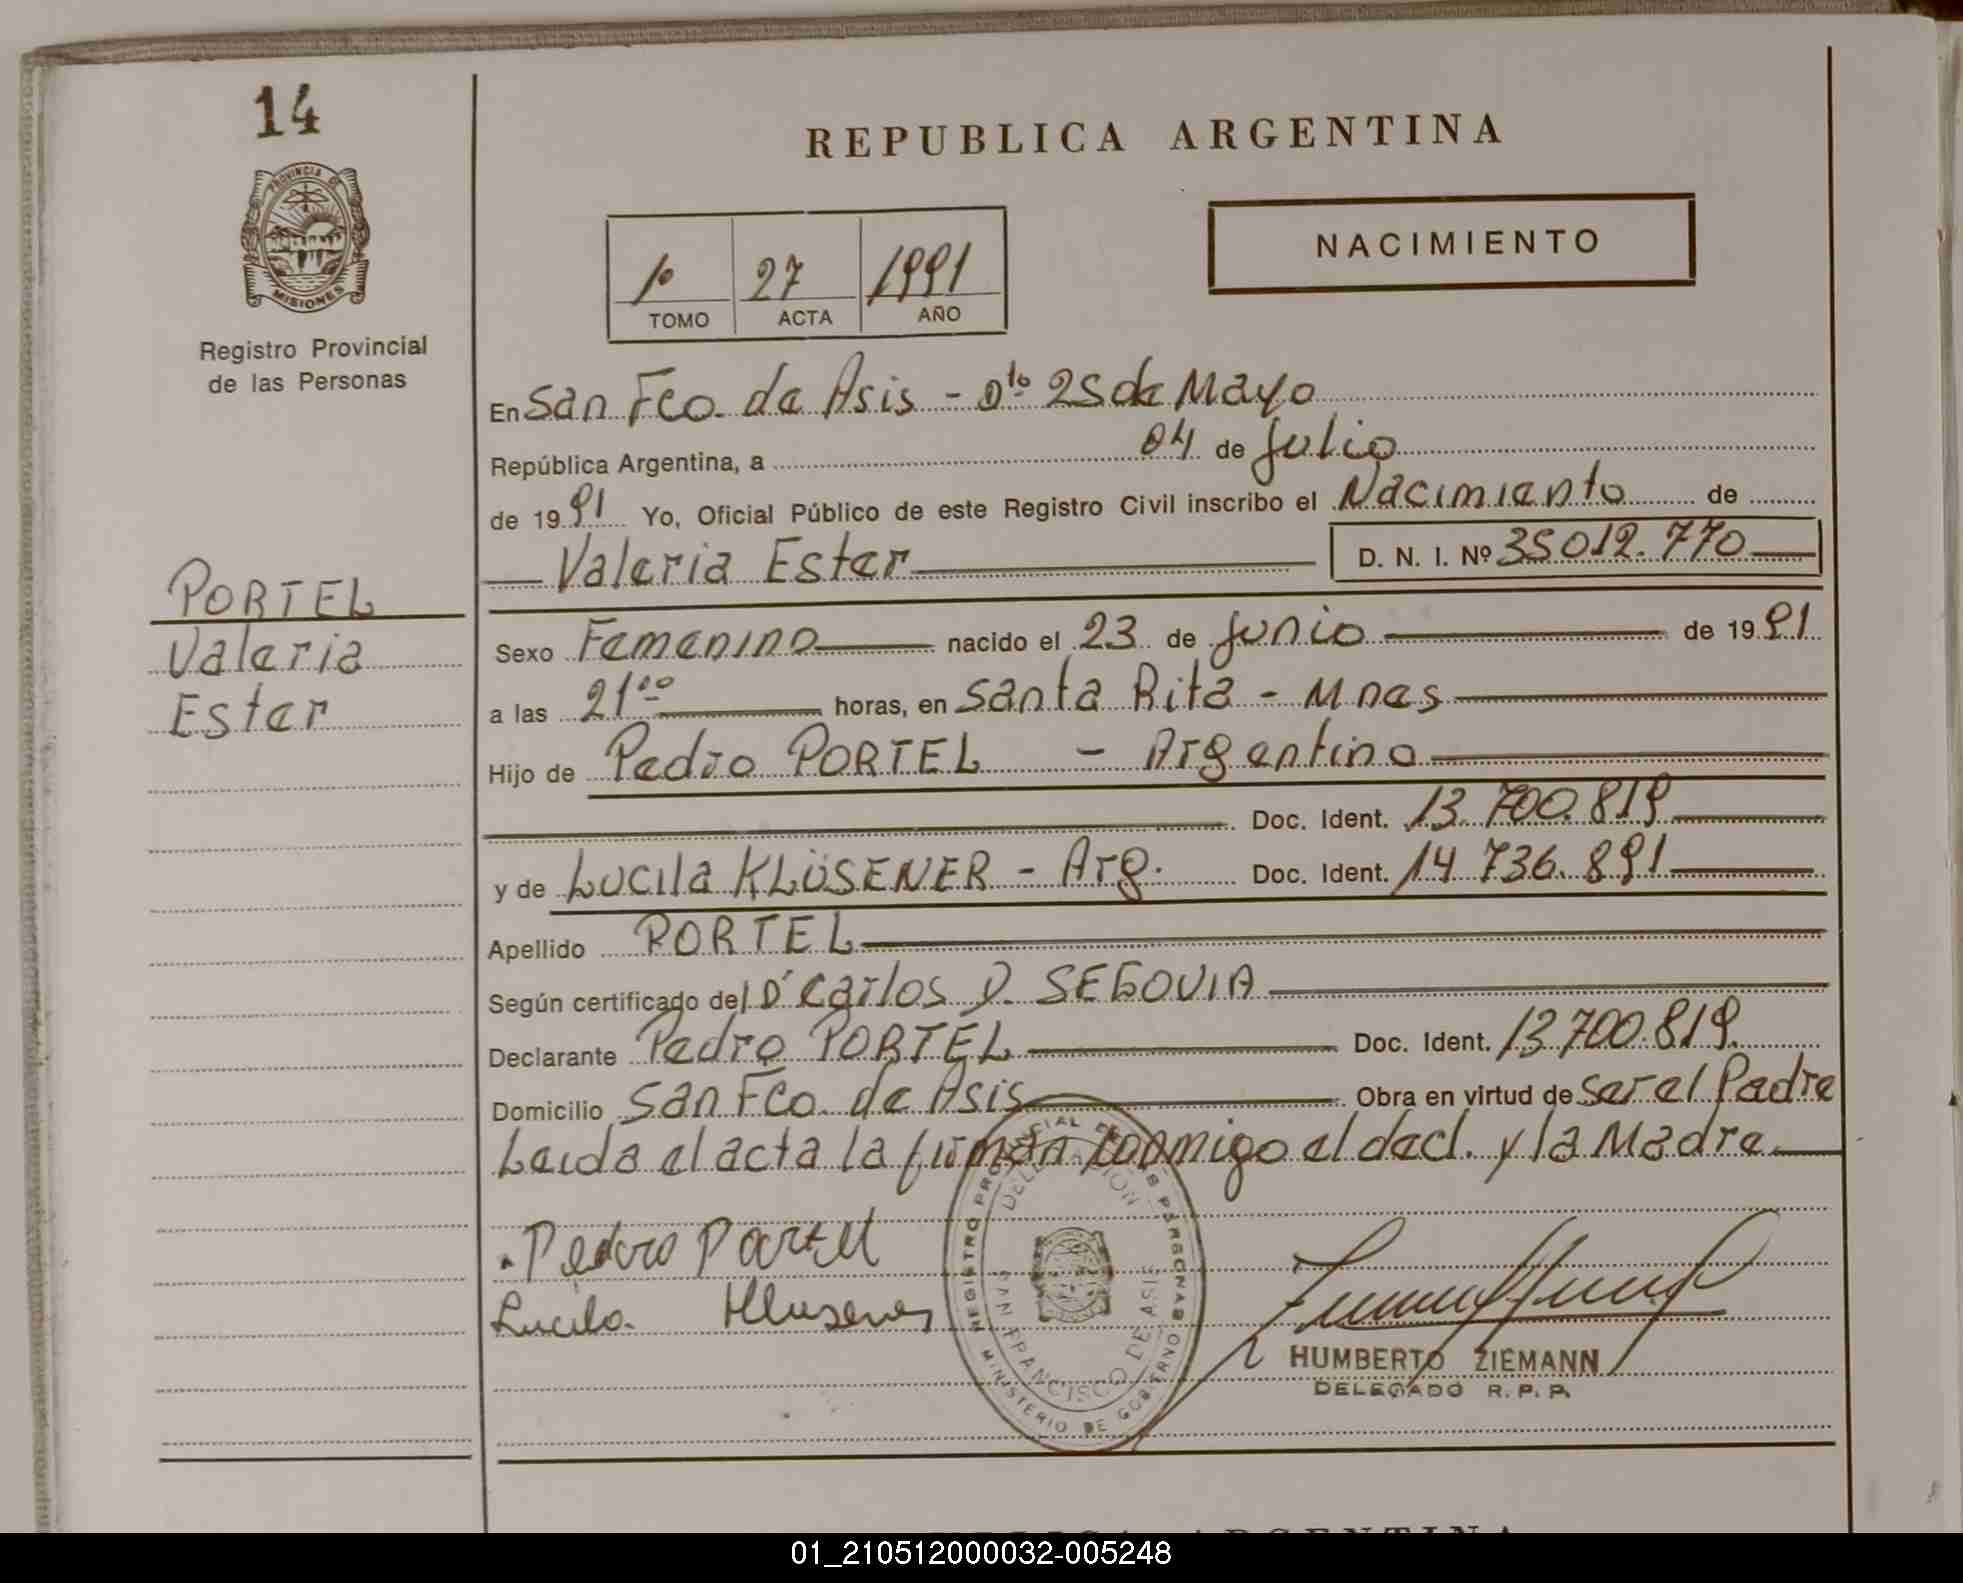 14
PROVINCIA DE
MISIONES
Registro Provincial
de las Personas
PORTEL
Valeria
Ester
REPUBLICA ARGENTINA
NACIMIENTO
1º 27 1991
TOMO ACTA AÑO
En San Fco. de Asis - Dto. 25 de Mayo
República Argentina, a 04 de Julio
de 1991 Yo, Oficial Público de este Registro Civil inscribo el Nacimiento de
Valeria Ester D. N. I. Nº 35012.770
Sexo Femenino nacido el 23 de Junio de 1991
a las 21.00 horas, en Santa Rita - Mnes
Hijo de Pedro PORTEL - Argentino
Doc. Ident. 13.700.819
y de Lucila KLÜSENER - Arg. Doc. Ident. 14.736.891
Apellido PORTEL
Según certificado del Dr Carlos D. SEGOVIA
Declarante Pedro PORTEL Doc. Ident. 13.700.819.
Domicilio San Fco. de Asis Obra en virtud de ser el Padre
Leida el acta la firman conmigo el decl. y la Madre
Pedro Portel
Lucila Klusener
REGISTRO PROVINCIAL DE LAS PERSONAS
DELEGACION
SAN FRANCISCO DE ASIS
MINISTERIO DE GOBIERNO
HUMBERTO ZIEMANN
DELEGADO R. P. P.
REPUBLICA ARGENTINA
01_210512000032-005248